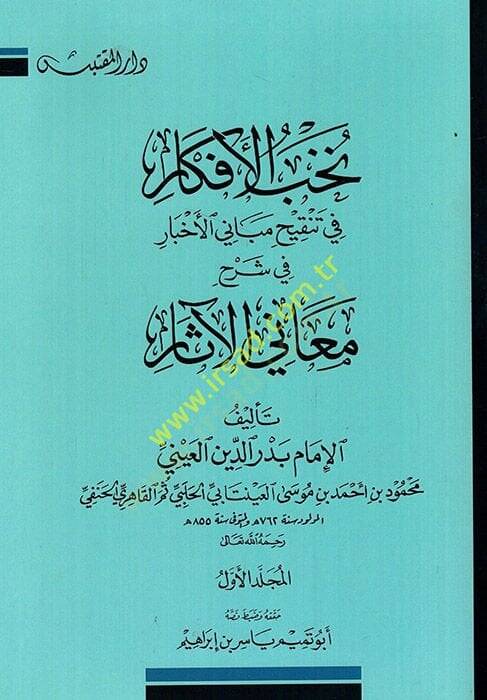 دار المقتبس
نُخَبُ الأَفْكَارِ
فِي تَنْقِيحِ مَبَانِي الأَخْبَارِ
فِي شَرْحِ
مَعَانِي الآثَارِ
تَأْلِيفُ
الإِمَامِ بَدْرِ الدِّينِ العَيْنِيِّ
مَحْمُود بن أَحْمَد بن مُوسَى العَيْنتَابِي الحَلَبِي ثُمَّ القَاهِرِيّ الحَنَفِيّ
المولود سنة ٧٦٢هـ والمتوفى سنة ٨٥٥هـ
رَحِمَهُ اللَّه تَعَالَى
المُجَلَّد الأَوَّلُ
حَقَّقَهُ وَضَبَطَ نَصَّهُ
أَبُو تَمِيم يَاسِر بن إِبْرَاهِيم
www.irsad.com.tr